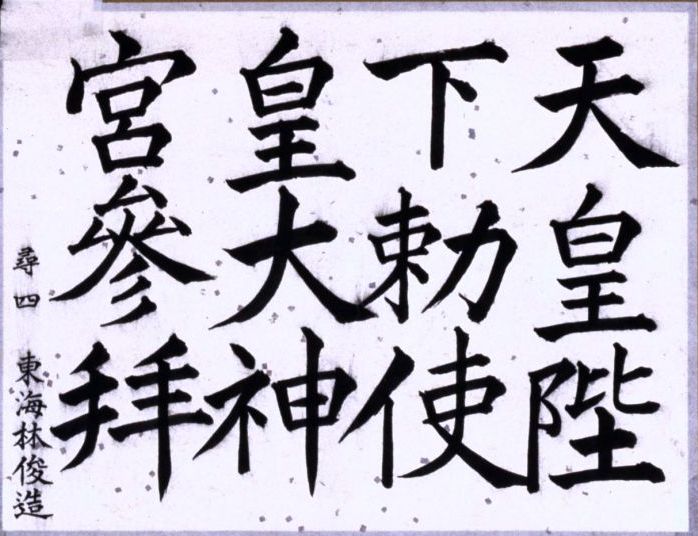 天皇陛
下勅使
皇大神
宮參拜
尋四 東海林俊造